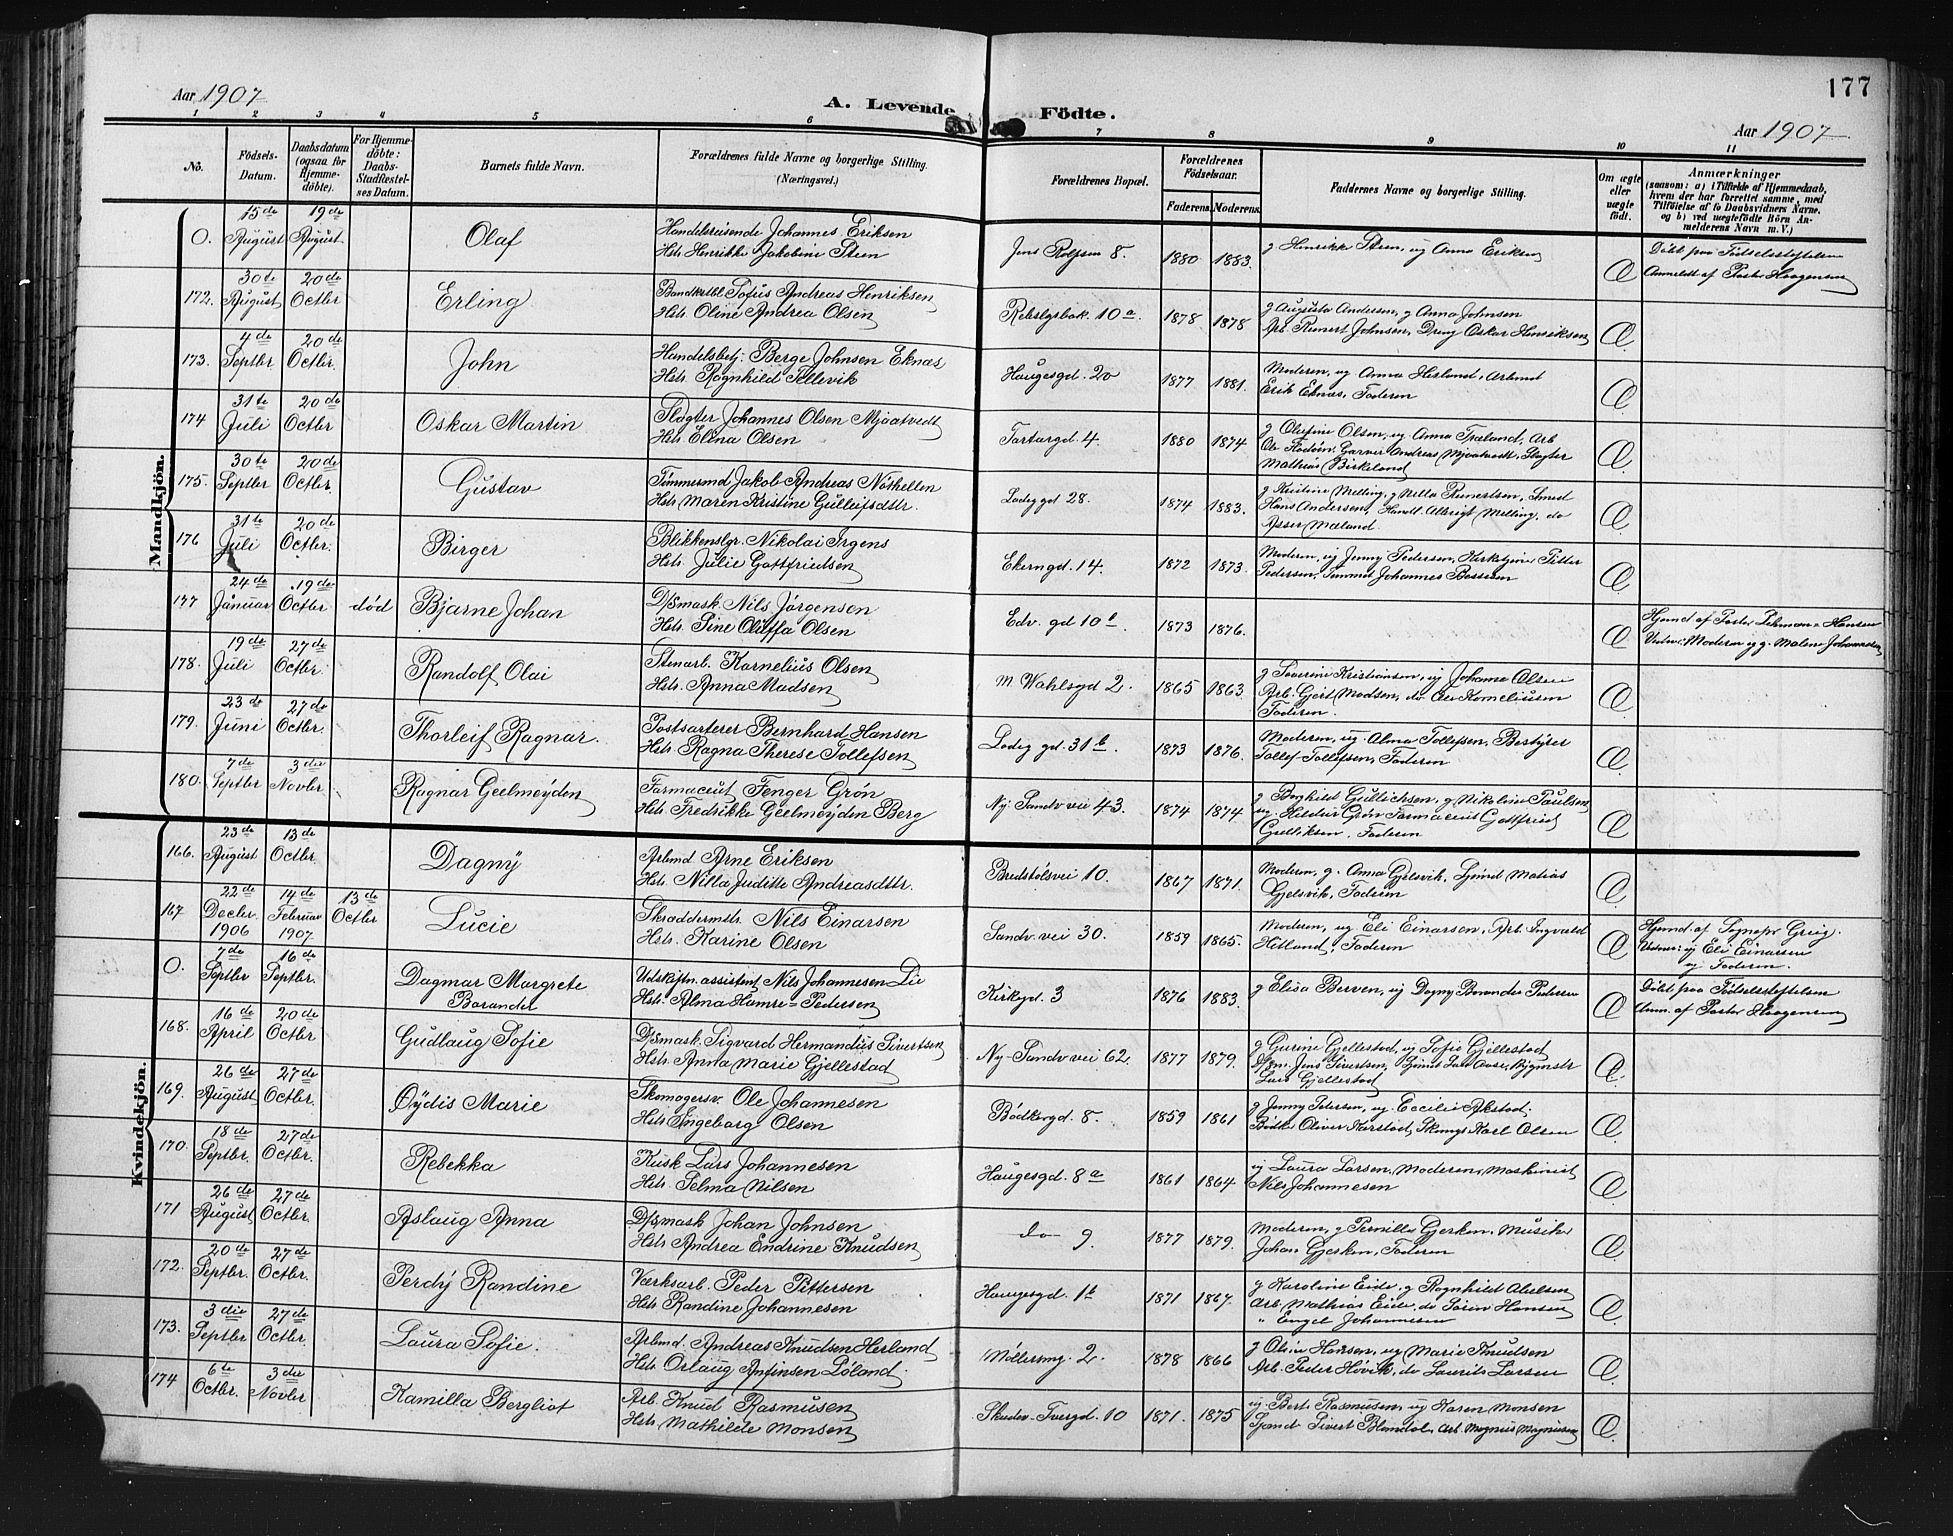 177
Aar 1907
A. Levende
Födte.
Aar 1907
1 2 3 4 5 6 7 8 9 10 11
No.
Födsels-Datum.
Daabsdatum (ogsaa for Hjemme-döbte).
For Hjemme-döbte: Daabs-Stadfæstel-ses Datum.
Barnets fulde Navn.
Forældrenes fulde Navne og borgerlige Stilling.
(Næringsvei.)
Forældrenes Bopæl.
Forældrenes Födselsaar.
Faderens. Moderens.
Faddernes Navne og borgerlige Stilling.
Om ægte eller uægte födt.
Anmærkninger
(saasom: a) i Tilfælde af Hjemmedaab,
hvem der har forrettet samme, med
Tilföielse af to Daabsvidners Navne,
og b) ved uegtefödte Börn An-
melderens Navn m. V.)
Mandkjön.
0. 15de August 19de August Olaf
Handelsreisende Johannes Eriksen
Hst. Henrikke Jakobine Steen
Jens Rolfsen 8. 1880 1883.
g Henrikke Steen, ug Anna Eriksen
Æ
Döbt paa Fødselsstiftelsen
Anmeldt af Pastor Haagensen
172. 30te August 20de Octbr Erling
Sofus Andreas Henriksen
Hst. Oline Andrea Olsen
Rebslgsbak. 10a. 1878 1878
g Augusta Andersen, g Anna Johnsen
Arb. Reinert Johnsen, Dreng Oskar Henriksen
Æ
173. 4de Septbr 20de Octbr. John
Handelsbetj. Berge Johnsen Eknæs
Hst. Ragnhild Tellevik
Haugesgd. 20 1877 1881.
Moderen, ug Anna Herland, Arbmd
Erik Eknæs, Faderen
Æ
174 31te Juli 20de Octbr Oskar Martin
Slagter Johannes Olsen Mjaatvedt
Hst. Elina Olsen
Tartargd. 4. 1880 1874
g Olufine Olsen, ug Anna Træland, Arb
Garver Andreas Mjaatvedt, Slagter
Mathias Birkeland
Æ
175. 30te Septbr 20de Octbr. Gustav
Tömmermd Jakob Andreas Nöthellen
Hst. Maren Kristine Gulleifsdtr.
Lodeggd 28. 1874 1883.
g Kristine Melling, g Nella Reinertsen, Smed
Hans Andersen, Handl. Albrigt Melling, do
Asser Mæland
Æ
176 31te Juli 20de Octbr. Birger
Blikkenslgr. Nikolai Irgens
Hst. Julie Gottfriedsen
Ekerngd. 14. 1872 1873.
Moderen, ug Jenny Pedersen, Kirketjener Pitter
Pedersen, Tömmd Johannes Bessesen
Æ
177 24de Januar 19de Octbr død Bjarne Johan
D/Smask. Nils Jörgensen
Hst. Sine Oleffa Olsen
Edv. gd 10b. 1873 1876.
Æ
Hjemd af Pastor Lehmann-Hansen
Vidner: Moderen og g. Malene Johannesen
178. 19de Juli 27de Octbr. Randolf Olai
Stenarb. Kornelius Olsen
Hst. Anna Madsen
M. Wahlsgd 2. 1865 1863.
g Severine Kristiansen, ug Johanne Olsen
Arb. Gjert Madsen, do Ole Korneliusen
Faderen.
Æ
179. 23de Juni 27de Octbr. Thorleif Ragnar.
Postsorterer Bernhard Hansen
Hst. Ragna Therese Tollefsen
Lodeg gd. 31b. 1873 1876.
Moderen, ug. Alma Tollefsen, Bestyrer
Tollef Tollefsen, Faderen
Æ
180. 7de Septbr 3die Novbr Ragnar Geelmøyden
Farmaceut Fenger Grön
Hst. Fredrikke Geelmøyden Berg
Ny Sandv. vei 43. 1874 1874
g Borghild Gullichsen, g Nikoline Paulsen
ug. Hildur Grön, Farmaceut Gottfried
Gulliksen, Faderen
Æ
Kvindekjön.
166. 23de August 13de Octbr. Dagny
Arbmd Arne Eriksen
Hst. Nilla Juditte Andreasdttr.
Bredstølsvei 10. 1867 1871.
Moderen, g. Anna Gjelsvik, Sjømd Matias
Gjelsvik, Faderen
Æ
167 22de Decbr. 1906 14de Februar 1907. 13de Octbr Lucie
Skræddermstr. Nils Einarsen
Hst. Karine Olsen
Sandv. vei 30. 1859 1865.
Moderen, ug Eli Einarsen, Arb. Ingvald
Hitland, Faderen
Æ
Hjemd. af Sognepr Grieg.
Vidner: ug Eli Einarsen
og Faderen.
0. 7de Septbr 16de Septbr. Dagmar Margrete
Udskiftn. assistent Nils Johannesen Lie
Hst. Alma Hamre-Pedersen
Kirkegd. 3 1876 1883.
g Elisa Berven, ug Dagny Pedersen
Æ
Döbt paa Fødselsstiftelsen
Anm. af Pastor Haagensen
168. 16de April 20de Octbr Gudlaug Sofie
D/Smask. Sigvard Hermandus Sivertsen
Hst. Anna Marie Gjellestad
Ny-Sandv vei 62. 1877 1879.
g Gurine Gjellestad, ug Sofie Gjellestad
Jens Sivertsen,
Lars Gjellestad
Æ
169. 26de August 27de Octbr. Öydis Marie
Skomagersv. Ole Johannesen
Hst. Ingeborg Olsen
Bødkergd. 8. 1859 1861
g Jenny Petersen, ug. Cecilie Aksstad.
Oliver Karstad, Karl Olsen
Æ
170. 18de Septbr. 27de Octbr. Rebekka
Kusk Lars Johannesen
Hst. Selma Nilsen
Haugesgd. 8a 1861 1864.
ug Laura Larsen, Moderen, Maskinist
Nils Johannesen
Æ
171 26de August 27de Octbr. Aslaug Anna
D/Smask Johan Johnsen
Hst. Andrea Endrine Knudsen
do 9. 1877 1879.
Moderen, g Pernille Gjerken, Musiker
Johan Gjerken, Faderen
Æ
172. 20de Septbr. 27de Octbr. Perdy Randine
Værksarb. Peder Pittersen
Hst. Randine Johannesen
Haugesgd. 1b 1871 1867.
g Karoline Eide, g Ragnhild Abelsen
Arb. Mathias Eide, do Søren Hansen
" Engel Johannesen
Æ
173. 3die Septbr 27de Octbr. Laura Sofie.
Arbmd. Andreas Knudsen Herland
Hst. Orlaug Anfinsen Löland.
Möllersmg. 2. 1878 1866
g Oline Hansen, ug Marie Knudsen
Arb. Peder Høvik, do Laurits Larsen
Æ
174 6te Octbr. 3die Novbr Kamilla Bergliot
Arb. Knud Rasmusen
Hst. Mathilde Monsen
Skudev. Tvergd. 10 1871. 1875
ug. Bert. Rasmusen, ug Karen Monsen
Sjømd Sivert Blomdal, Arb. Magnus Magnusen
Æ